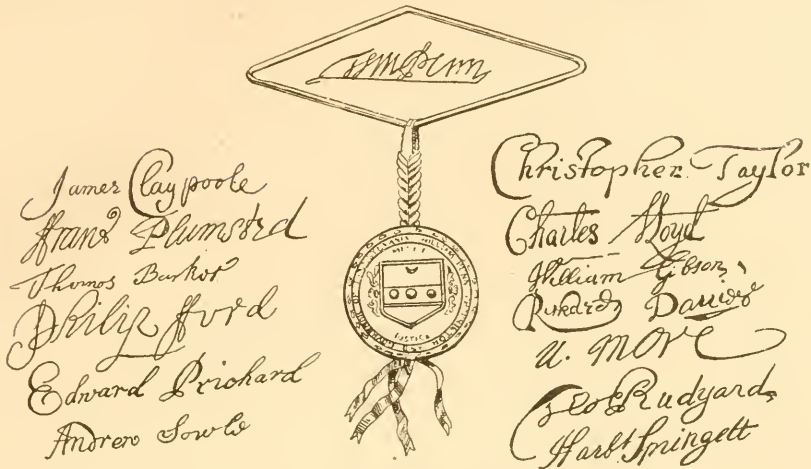 Wm Penn
James Claypoole
ffranс Plumsted
Thomas Barker
Philip fford
Edward Prichard
Andrew Sowle
MERCY
JUSTICE
Christopher Taylor
Charles Lloyd
William Gibson
Richard Davies
N. More
Geo Rudyard
Harbt Springett